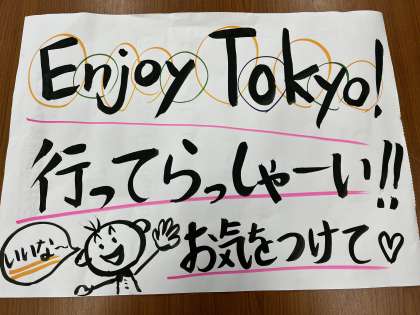 Enjoy Tokyo!
行ってらっしゃーい!!
お気をつけて♡
いいな〜